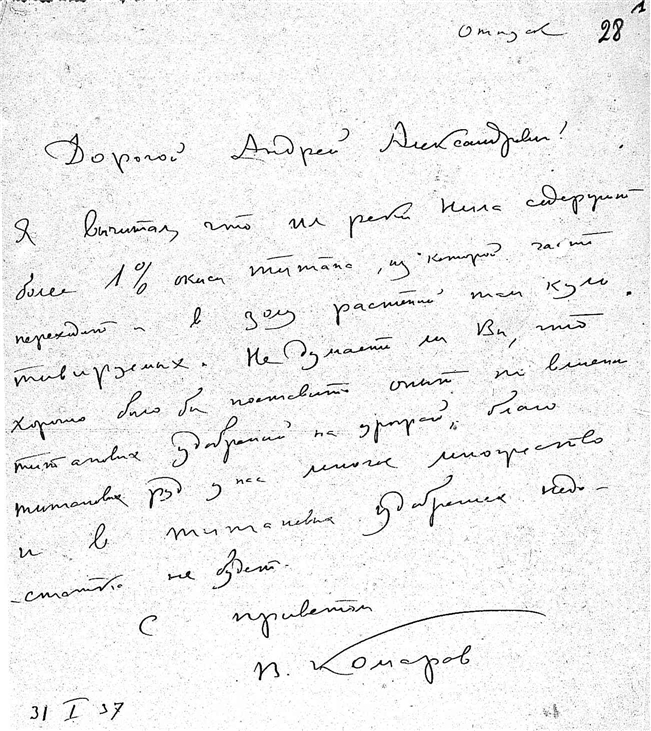 Отпуск 28
Дорогой Андрей Александрович!
Я вычитал, что ил реки Нила содержит
более 1% окиси титана, из которой часть
переходит и в золу растений там куль-
тивируемых. Не думаете ли Вы, что
хорошо было бы поставить опыт по влиянию
титановых удобрений на урожай, благо
титановых руд у нас многое множество
и в титановых удобрениях недо-
-статка не будет.
С приветом
В. Комаров
31 I 37